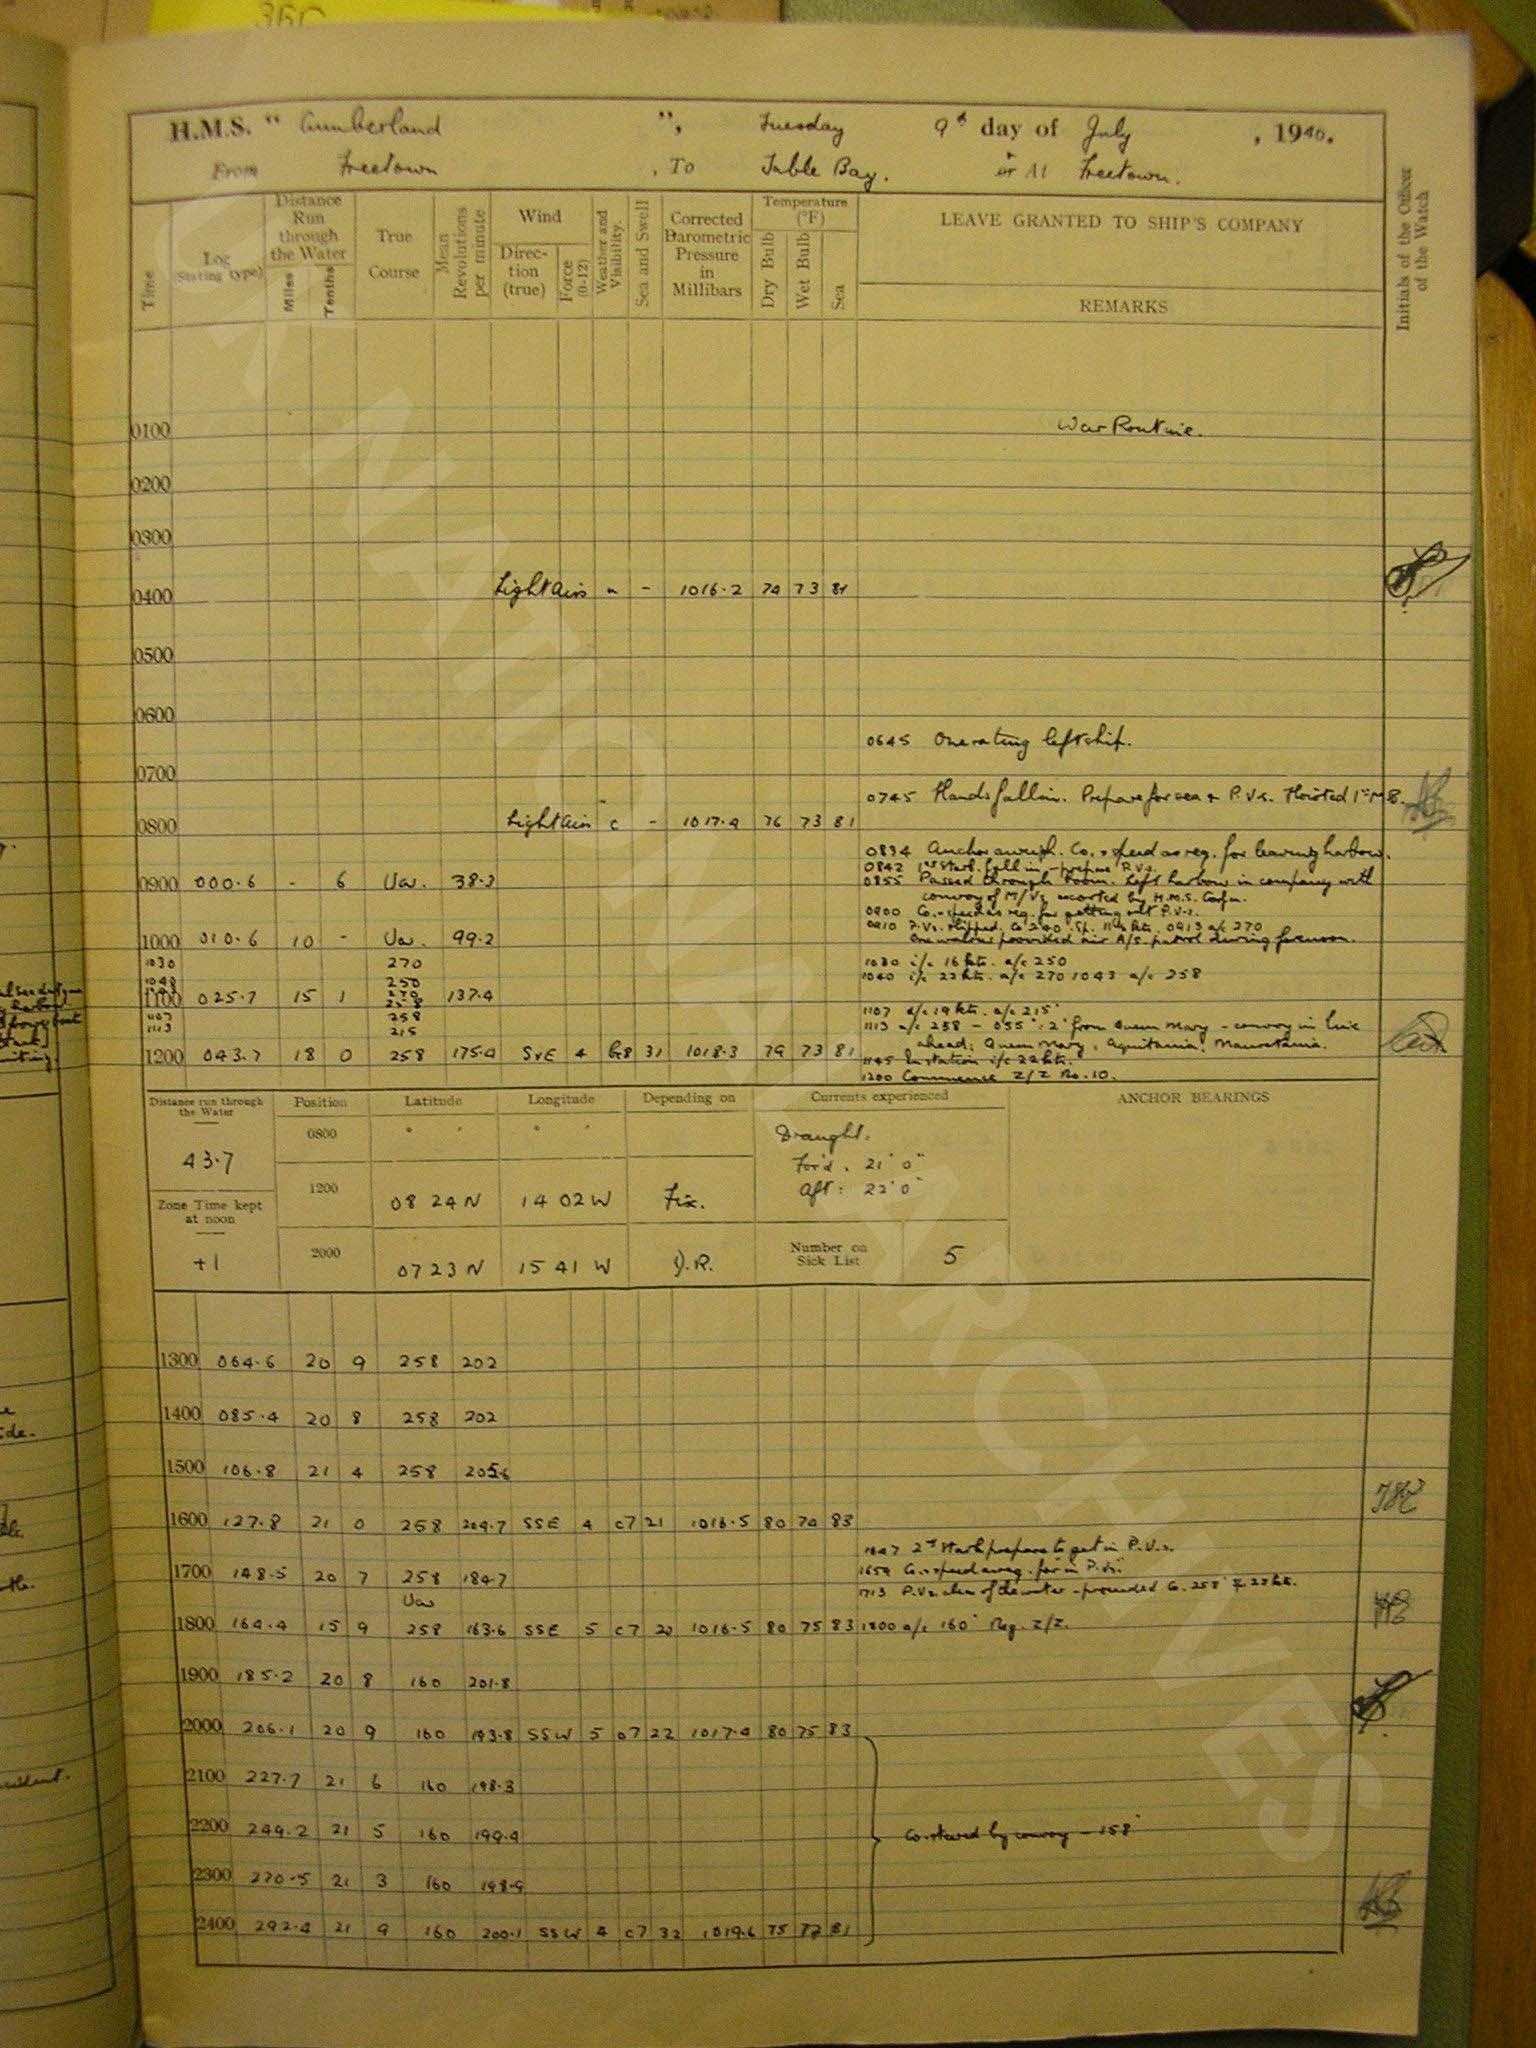 H.M.S. " Cumberland ", Tuesday 9th day of July, 1940.
From Freetown, To Table Bay. or At Freetown.
Time
Log (Stating type)
Distance Run through the Water
Miles
Tenths
True Course
Mean Revolutions per minute
Wind
Direction (true)
Force (0-12)
Weather and Visibility.
Sea and Swell
Corrected Barometric Pressure in Millibars
Temperature (°F)
Dry Bulb
Wet Bulb
Sea
LEAVE GRANTED TO SHIP'S COMPANY
REMARKS
Initials of the Officer of the Watch
0100 War Routine.
0200
0300
0400 Light airs - 1016.2 74 73 81
0500
0600
0645 One rating left ship.
0700
0745 Hands fall in. Prepare for sea & P.V.s. Hoisted 1st M.B.
0800 Light airs c - 1017.4 76 73 81
0834 Anchor aweigh. Co. & speed as req. for leaving harbour.
0842 1st Starb. fall in - prepare P.V.s.
0855 Passed through boom. Left harbour in company with
convoy of M/Vs escorted by H.M.S.
0900 000.6 - 6 Var. 38.3
0900 Co. & speed as req. for getting out P.V.s.
0910 P.V.s. slipped. Co 240 Sp. kts. 0913 a/c 270
1000 010.6 10 - Var. 99.2
One walrus provided air A/S. patrol during forenoon.
1030 270
1030 i/c 16 kts. a/c 250
1040 i/c 22 kts. a/c 270 1043 a/c 258
250
270
258
1100 025.7 15 1 137.4
1107 258
1107 d/c 19 kts. a/c 215°
1113 215
1113 a/c 258 - 055° : 2' from Queen Mary - convoy in line
ahead; Queen Mary, Aquitania, Mauretania.
1200 043.7 18 0 258 175.0 SxE 4 b8 31 1018.3 79 73 81
1145 In station i/c 22 kts.
1200 Commence Z/Z No. 10.
Distance run through the Water
43.7
Zone Time kept at noon
+1
Position Latitude Longitude Depending on
0800
1200 08 24 N 14 02 W Fix.
2000 07 23 N 15 41 W D.R.
Currents experienced
Draught.
For'd. 21' 0"
Aft: 22' 0"
Number on Sick List 5
ANCHOR BEARINGS
1300 064.6 20 9 258 202
1400 085.4 20 8 258 202
1500 106.8 21 4 258 205.6
1600 127.8 21 0 258 204.7 SSE 4 c7 21 1016.5 80 74 83
1647 2nd Starb prepare to get in P.V.s.
1659 Co. & speed as req. for in P.Vs.
1700 148.5 20 7 258 184.7
1713 P.Vs clear of the water - proceeded Co. 258° & 22 kts.
Var
1800 164.4 15 9 258 163.6 SSE 5 c7 20 1016.5 80 75 83 1800 a/c 160° Reg. Z/Z.
1900 185.2 20 8 160 201.8
2000 206.1 20 9 160 193.8 SSW 5 07 22 1017.4 80 75 83
2100 227.7 21 6 160 198.3
2200 249.2 21 5 160 199.4
Co. steered by convoy - 158°
2300 270.5 21 3 160 198.9
2400 292.4 21 9 160 200.1 SSW 4 c7 32 1019.6 75 72 81
NATIONAL ARCHIVES